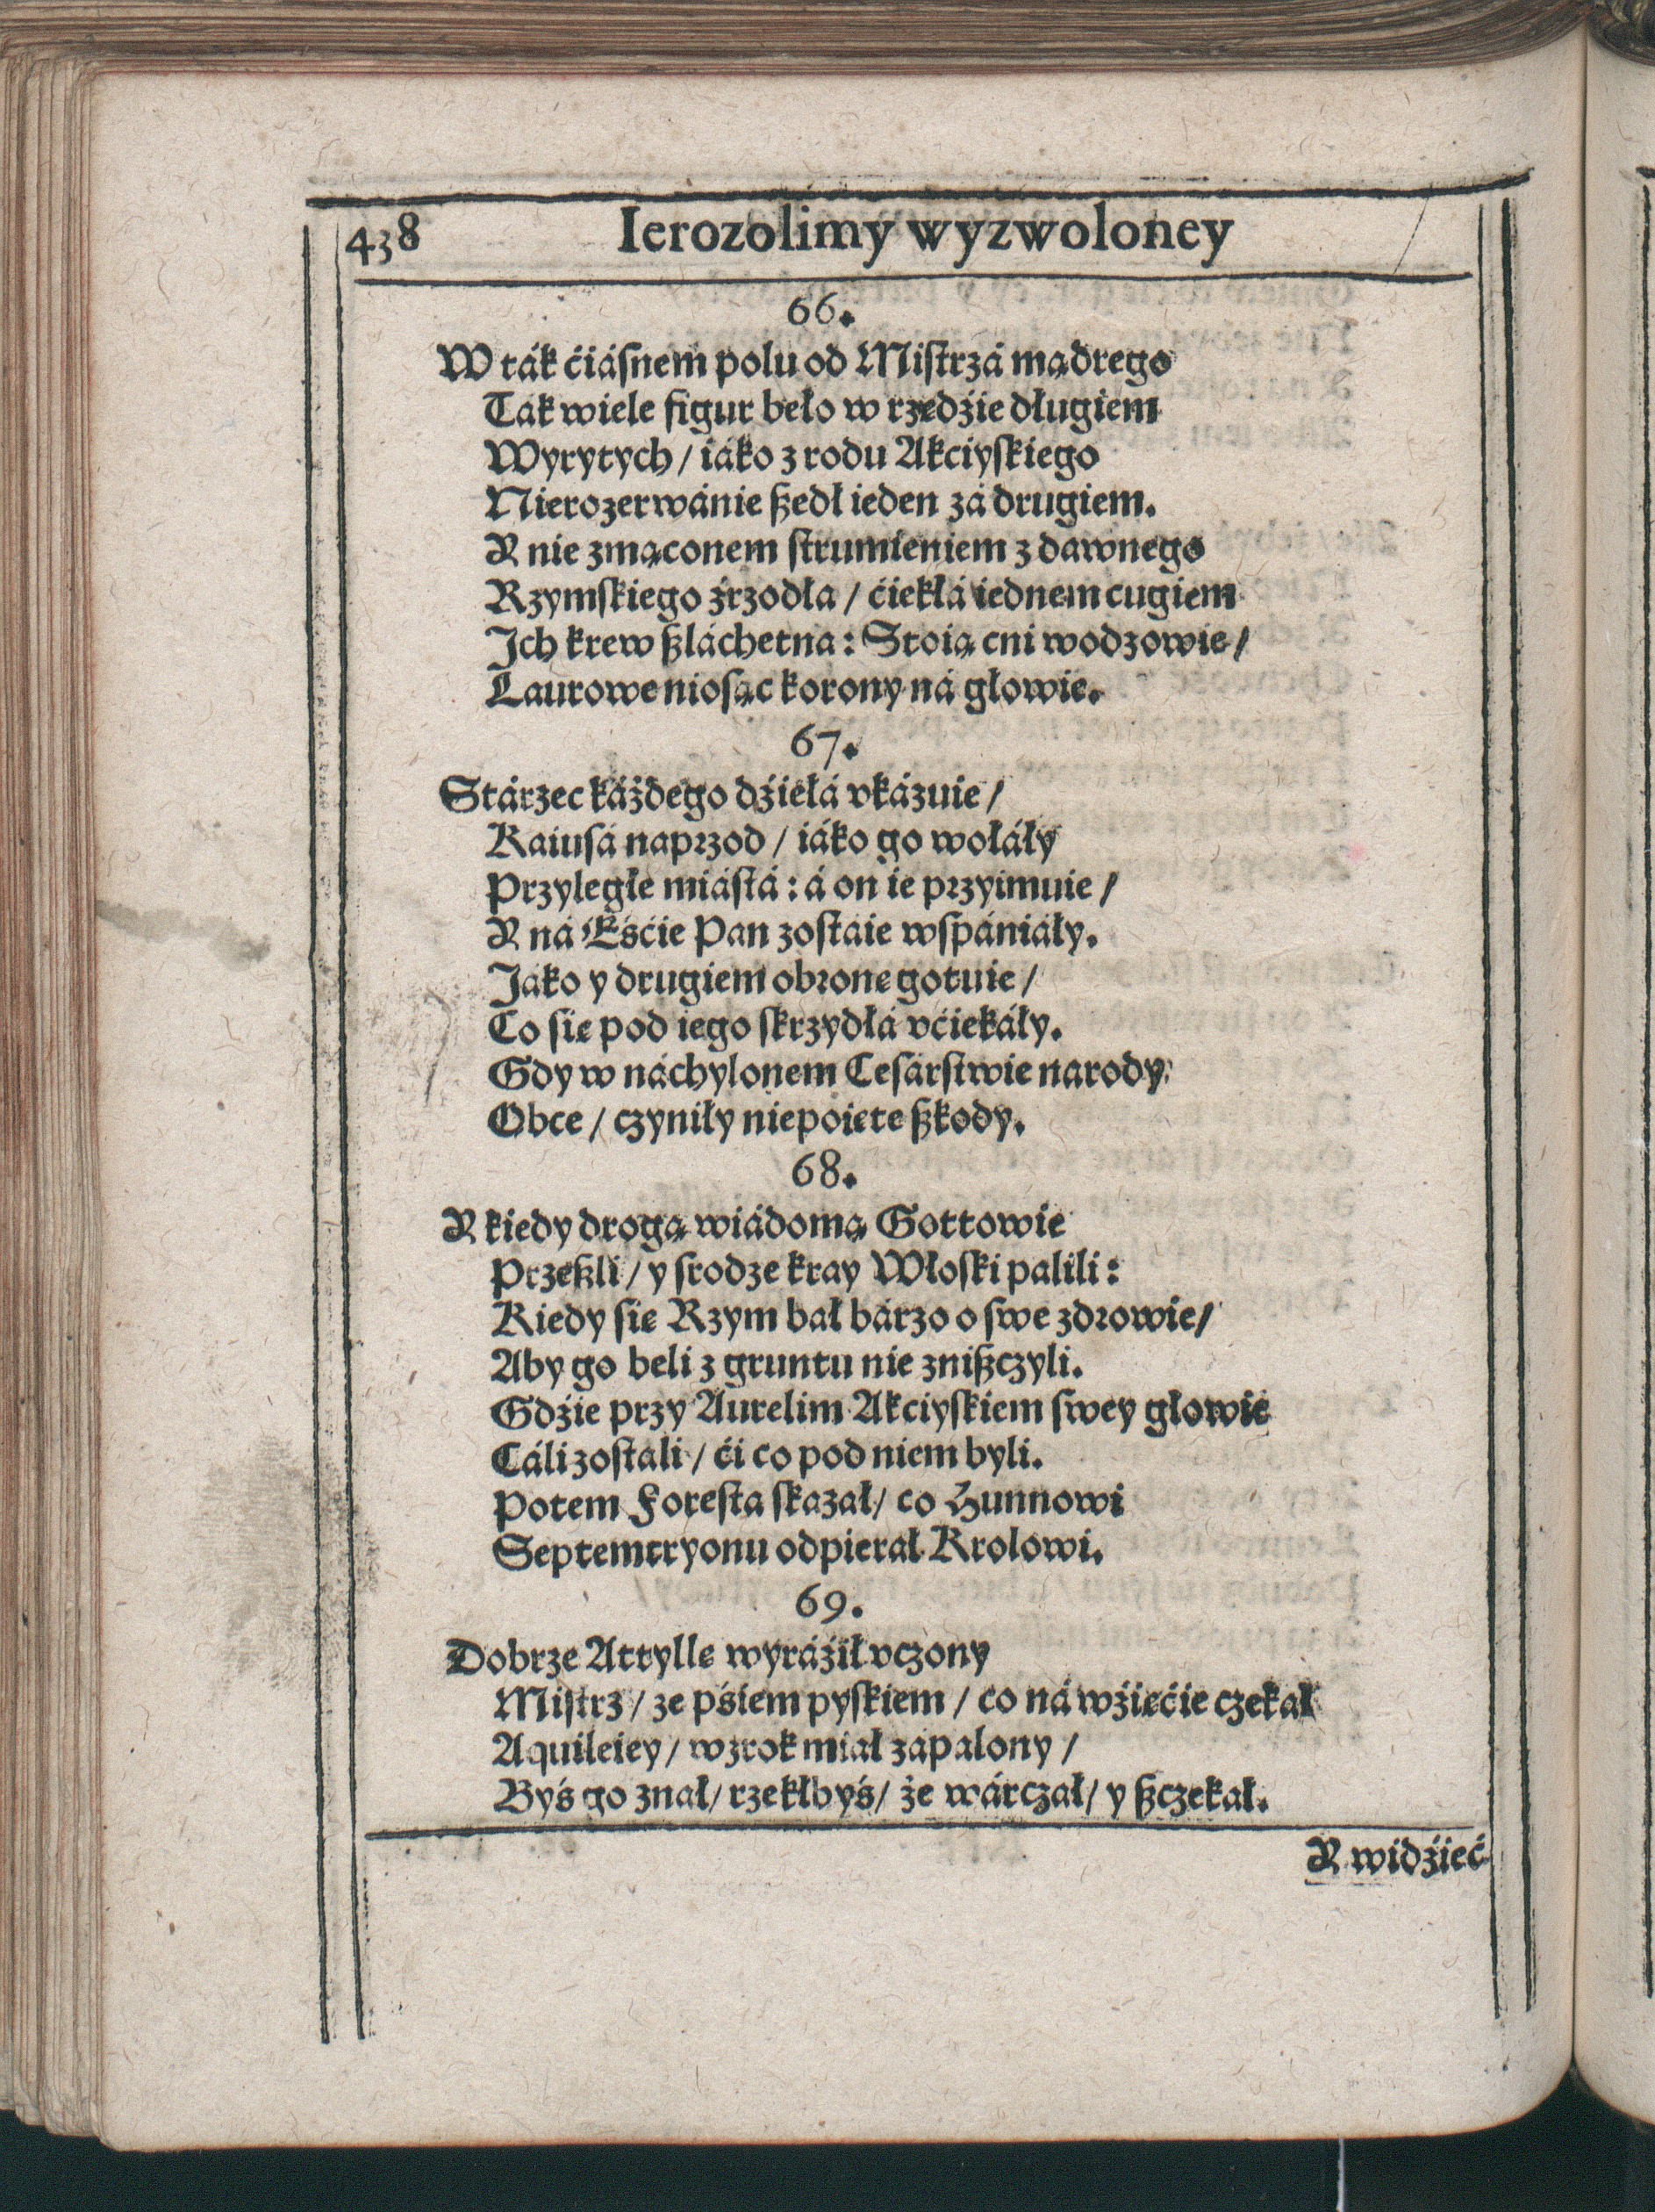 438 Ierozolimy wyzwoloney
66.
W ták ćiásnem polu od Mistrzá mądrego
Ták wiele figur beło w rzędźie długiem
Wyrytych / iáko z rodu Akciyskiego
Nierozerwánie szedł ieden zá drugiem.
A nie zmąconem strumieniem z dawnego
Rzymskiego źrzodła / ćiekłá iednem cugiem
Ich krew szláchetna: Stoią cni wodzowie /
Laurowe niosąc korony ná głowie.
67.
Stárzec káżdego dźiełá vkázuie /
Kaiusá naprzod / iáko go wołáły
Przyległe miástá: á on ie przyimuie /
A ná Eśćie Pan zostáie wspániáły.
Jáko y drugiem obronę gotuie /
Co się pod iego skrzydłá vćiekáły.
Gdy w náchylonem Cesárstwie narody
Obce / czyniły niepoięte szkody.
68.
A kiedy drogą wiádomą Gottowie
Przeszli / y srodze kray Włoski palili:
Kiedy się Rzym bał bárzo o swe zdrowie /
Aby go beli z gruntu nie zniszczyli.
Gdźie przy Aurelim Akciyskiem swey głowie
Cáli zostali / ći co pod niem byli.
Potem Foresta skazał / co Hunnowi
Septemtryonu odpierał Krolowi.
69.
Dobrze Attyllę wyráźił vczony
Mistrz / ze pśiem pyskiem / co ná wźięćie czekał
Aquileiey / wzrok miał zápalony /
Byś go znał / rzekłbyś / że wárczał / y szczekał.
A widźieć